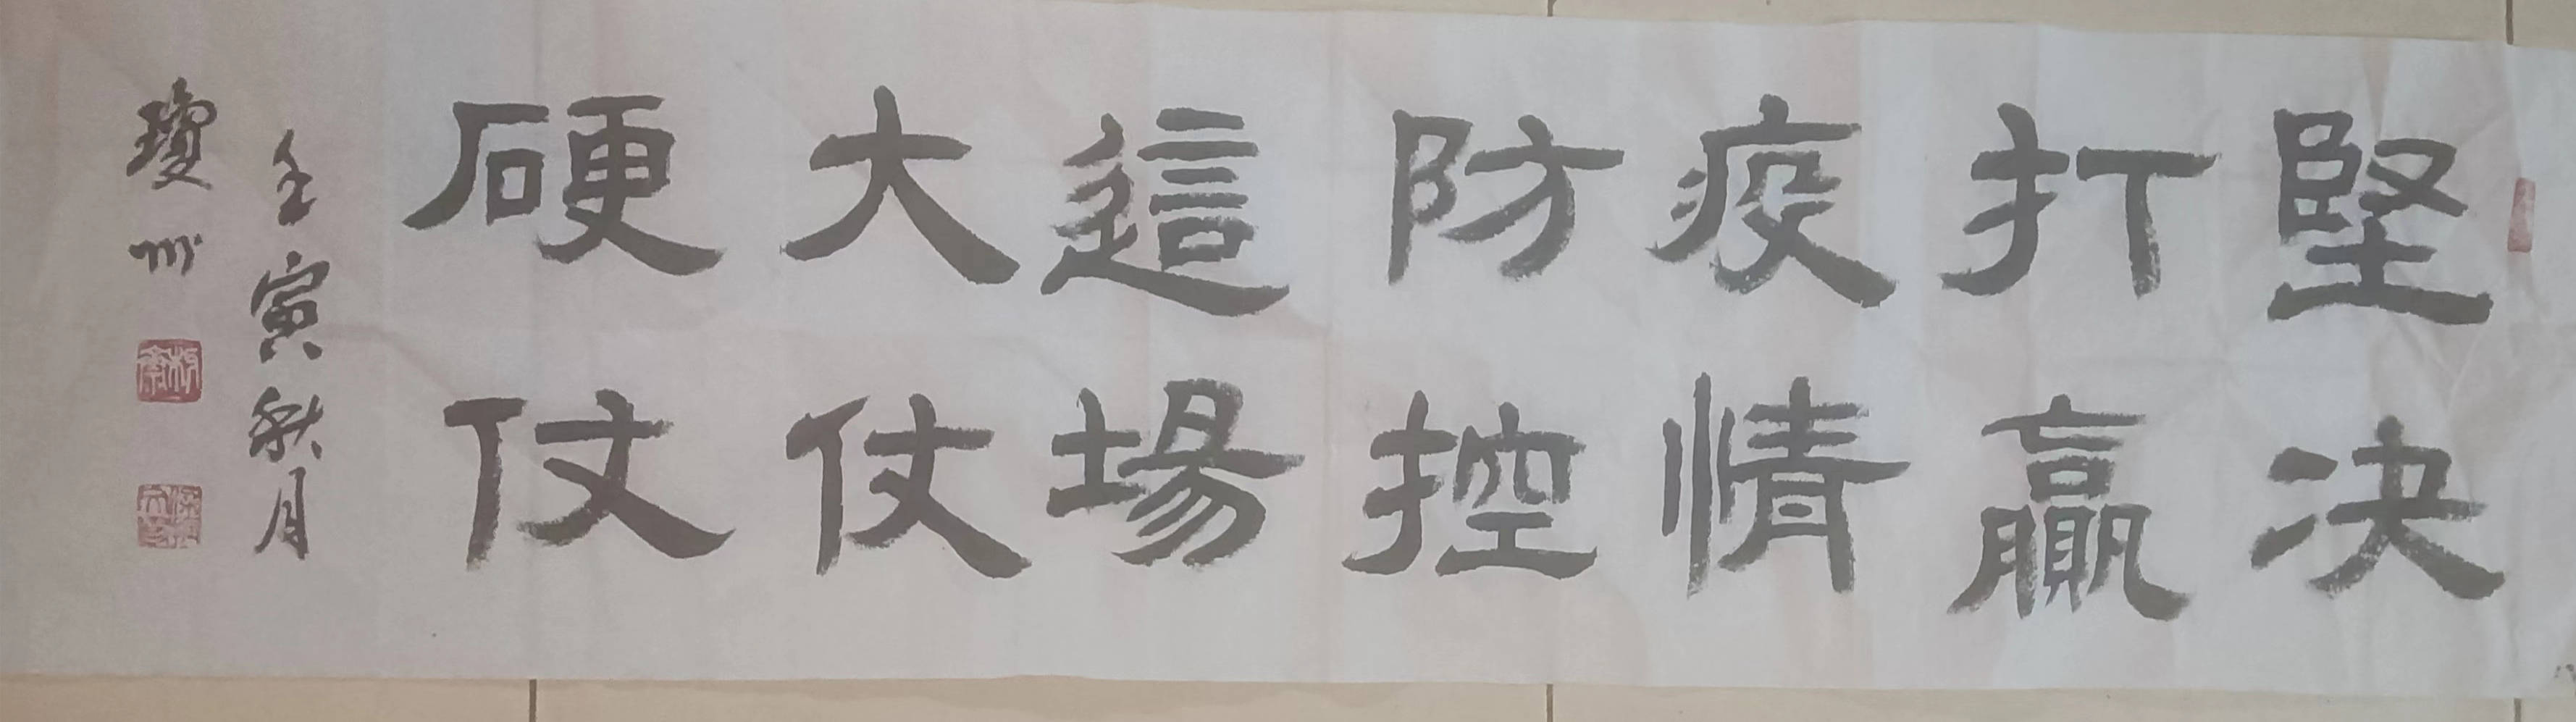 堅决
打贏
疫情
防控
這場
大仗
硬仗
壬寅秋月
瓊州